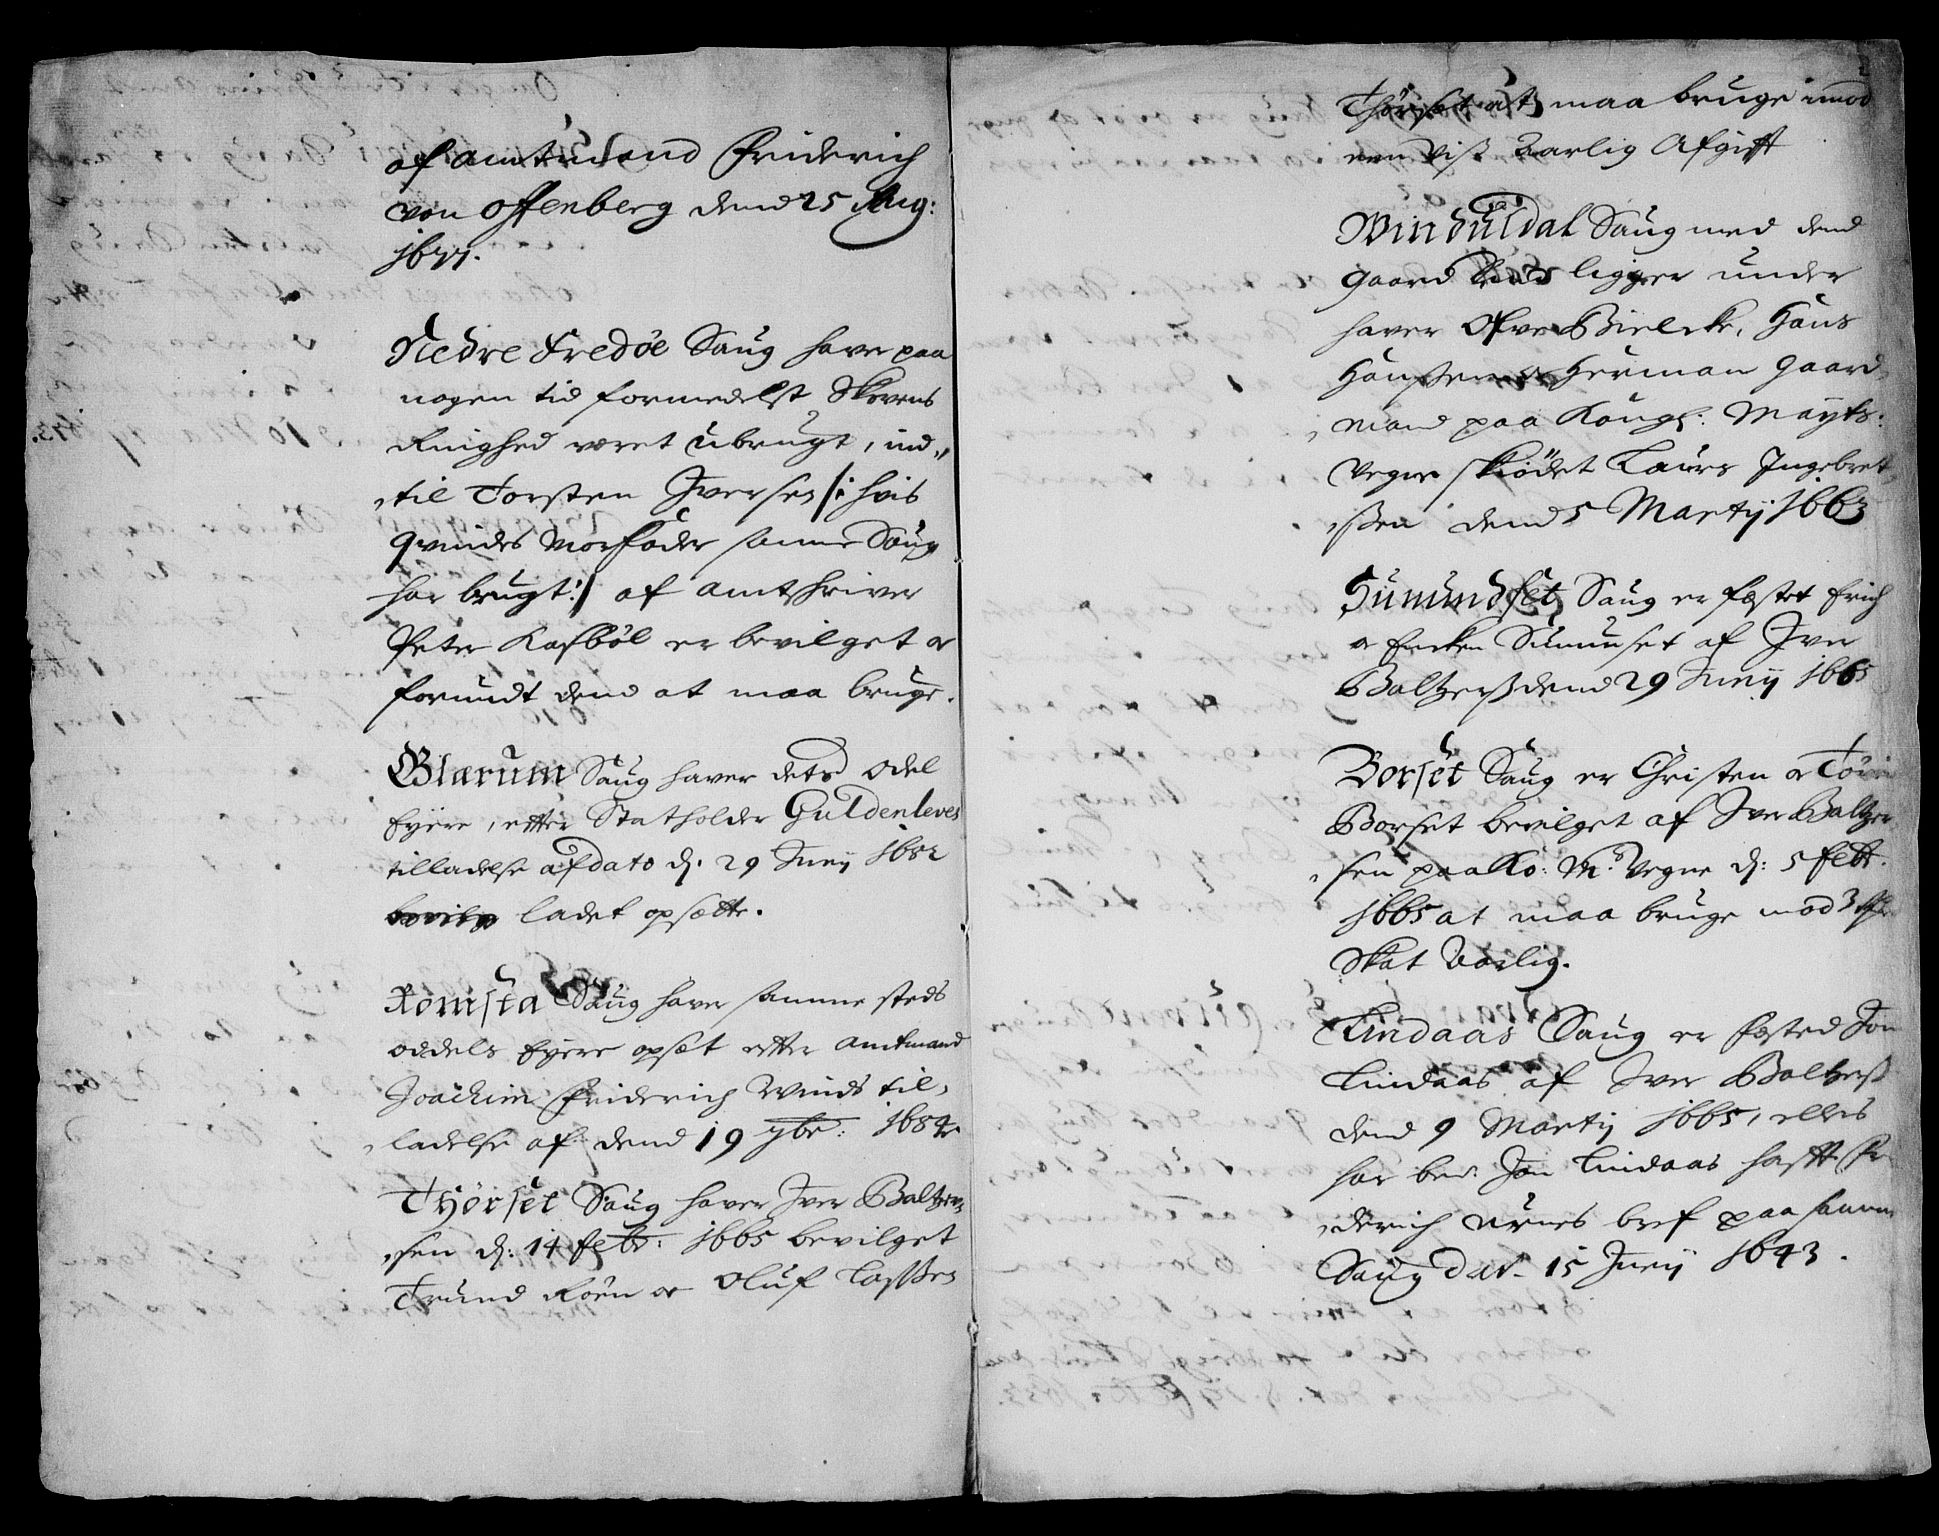 af amtmand Friderich
von Offenberg dend 25 Aug:
1677.
Nedre Fredøe Saug haver paa
nogen tid formedelst Skovens
Ringhed veret ubrugt, ind„
„til Torsten Iversen /: hvis
qvindes Morfader samme Saug
har brugt :/ af amtskriver
Peter Kasbøl er bevilget oc
forundt dend at maa bruge.
Glærum Saug haver dets Odel
Eyere, efter Statholder Guldenleves
tilladelse af dato d. 29 Junij 1682
ladet opsætte.
Romsta Saug haver samme steds
oddels Eyere opsat efter Amtmand
Joachim Friderich Winds til„
„ladelse af dend 19 9br: 1684
Thørset Saug haver Iver Baltzer„
„sen d: 14 febr: 1665 bevilget
Trund Røen oc Oluf Lassen
Thørset at maa bruge imod
een viss Aarlig Afgift
Winduldal Saug med dend
gaard ligger under
haver Ofve Bielcke, Hans
Hanssen oc Herman Gaard„
„mand paa Kongl: Mayts:
Vegne skiødet Laurs Ingebret„
„ssen dend 5 Martij 1663
Sumundset Saug er fæstet Erich
oc Sumunset af Iver
Baltzerss dend 29 Junij 1665
Borset Saug er Christen oc
Borset bevilget af Iver Baltzer„
„sen paa Ko: Ms Vegne d: 5 febr.
1665 at maa bruge mod 3
Skat Aarlig.
Lindaas Saug er fæsted Jon
Lindaas af Iver Baltzerss
dend 9 Martij 1665, elles
har bem: Jon Lindaas hafft Fri„
„derich Urnes bref paa samme
Saug dat. 15 Junij 1643.